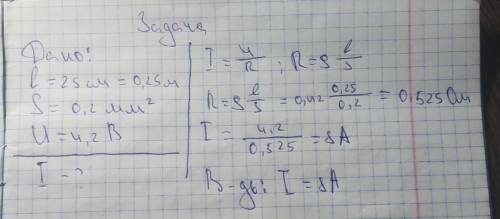 Задача
Дано:
l = 25 см = 0,25 м
S = 0,2 мм²
U = 4,2 В
I - ?
I = U/R ; R = ρ l/S
R = ρ l/S = 0,42 0,25/0,2 = 0,525 Ом
I = 4,2/0,525 = 8А
В-дь: I = 8А